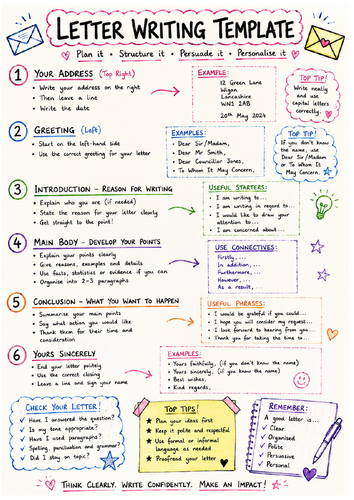 LETTER WRITING TEMPLATE
Plan it • Structure it • Persuade it • Personalise it
1 YOUR ADDRESS (Top Right)
• Write your address on the right
• Then leave a line
• Write the date
EXAMPLE:
12 Green Lane
Wigan
Lancashire
WN1 2AB
20th May 2024
TOP TIP!
Write neatly
and use
capital letters
correctly.
2 GREETING (Left)
• Start on the left-hand side
• Use the correct greeting for your letter
EXAMPLES:
• Dear Sir/Madam,
• Dear Mr Smith,
• Dear Councillor Jones,
• To Whom It May Concern,
TOP TIP!
If you don't
know the
name, use
Dear Sir/Madam
or To Whom It
May Concern.
3 INTRODUCTION - REASON FOR WRITING
• Explain who you are (if needed)
• State the reason for your letter clearly
• Get straight to the point!
USEFUL STARTERS:
• I am writing to...
• I am writing in regard to...
• I would like to draw your
attention to...
• I am concerned about...
4 MAIN BODY - DEVELOP YOUR POINTS
• Explain your points clearly
• Give reasons, examples and details
• Use facts, statistics or evidence if you can
• Organise into 2-3 paragraphs
USE CONNECTIVES:
Firstly,...
In addition,...
Furthermore,...
However,...
As a result,...
5 CONCLUSION - WHAT YOU WANT TO HAPPEN
• Summarise your main points
• Say what action you would like
• Thank them for their time and
consideration
USEFUL PHRASES:
• I would be grateful if you could...
• I hope you will consider my request...
• I look forward to hearing from you
• Thank you for taking the time to...
6 YOURS SINCERELY
• End your letter politely
• Use the correct closing
• Leave a line and sign your name
EXAMPLES:
• Yours faithfully, (if you don't know the name)
• Yours sincerely, (if you know the name)
• Best wishes,
• Kind regards,
CHECK YOUR LETTER!
✓ Have I answered the question?
✓ Is my tone appropriate?
✓ Have I used paragraphs?
✓ Spelling, punctuation and grammar?
✓ Did I stay on topic?
TOP TIPS!
★ Plan your ideas first
★ Keep it polite and respectful
★ Use formal or informal
language as needed
★ Proofread your letter
REMEMBER:
A good letter is...
✓ Clear
✓ Organised
✓ Polite
✓ Persuasive
✓ Personal
THINK CLEARLY. WRITE CONFIDENTLY. MAKE AN IMPACT!